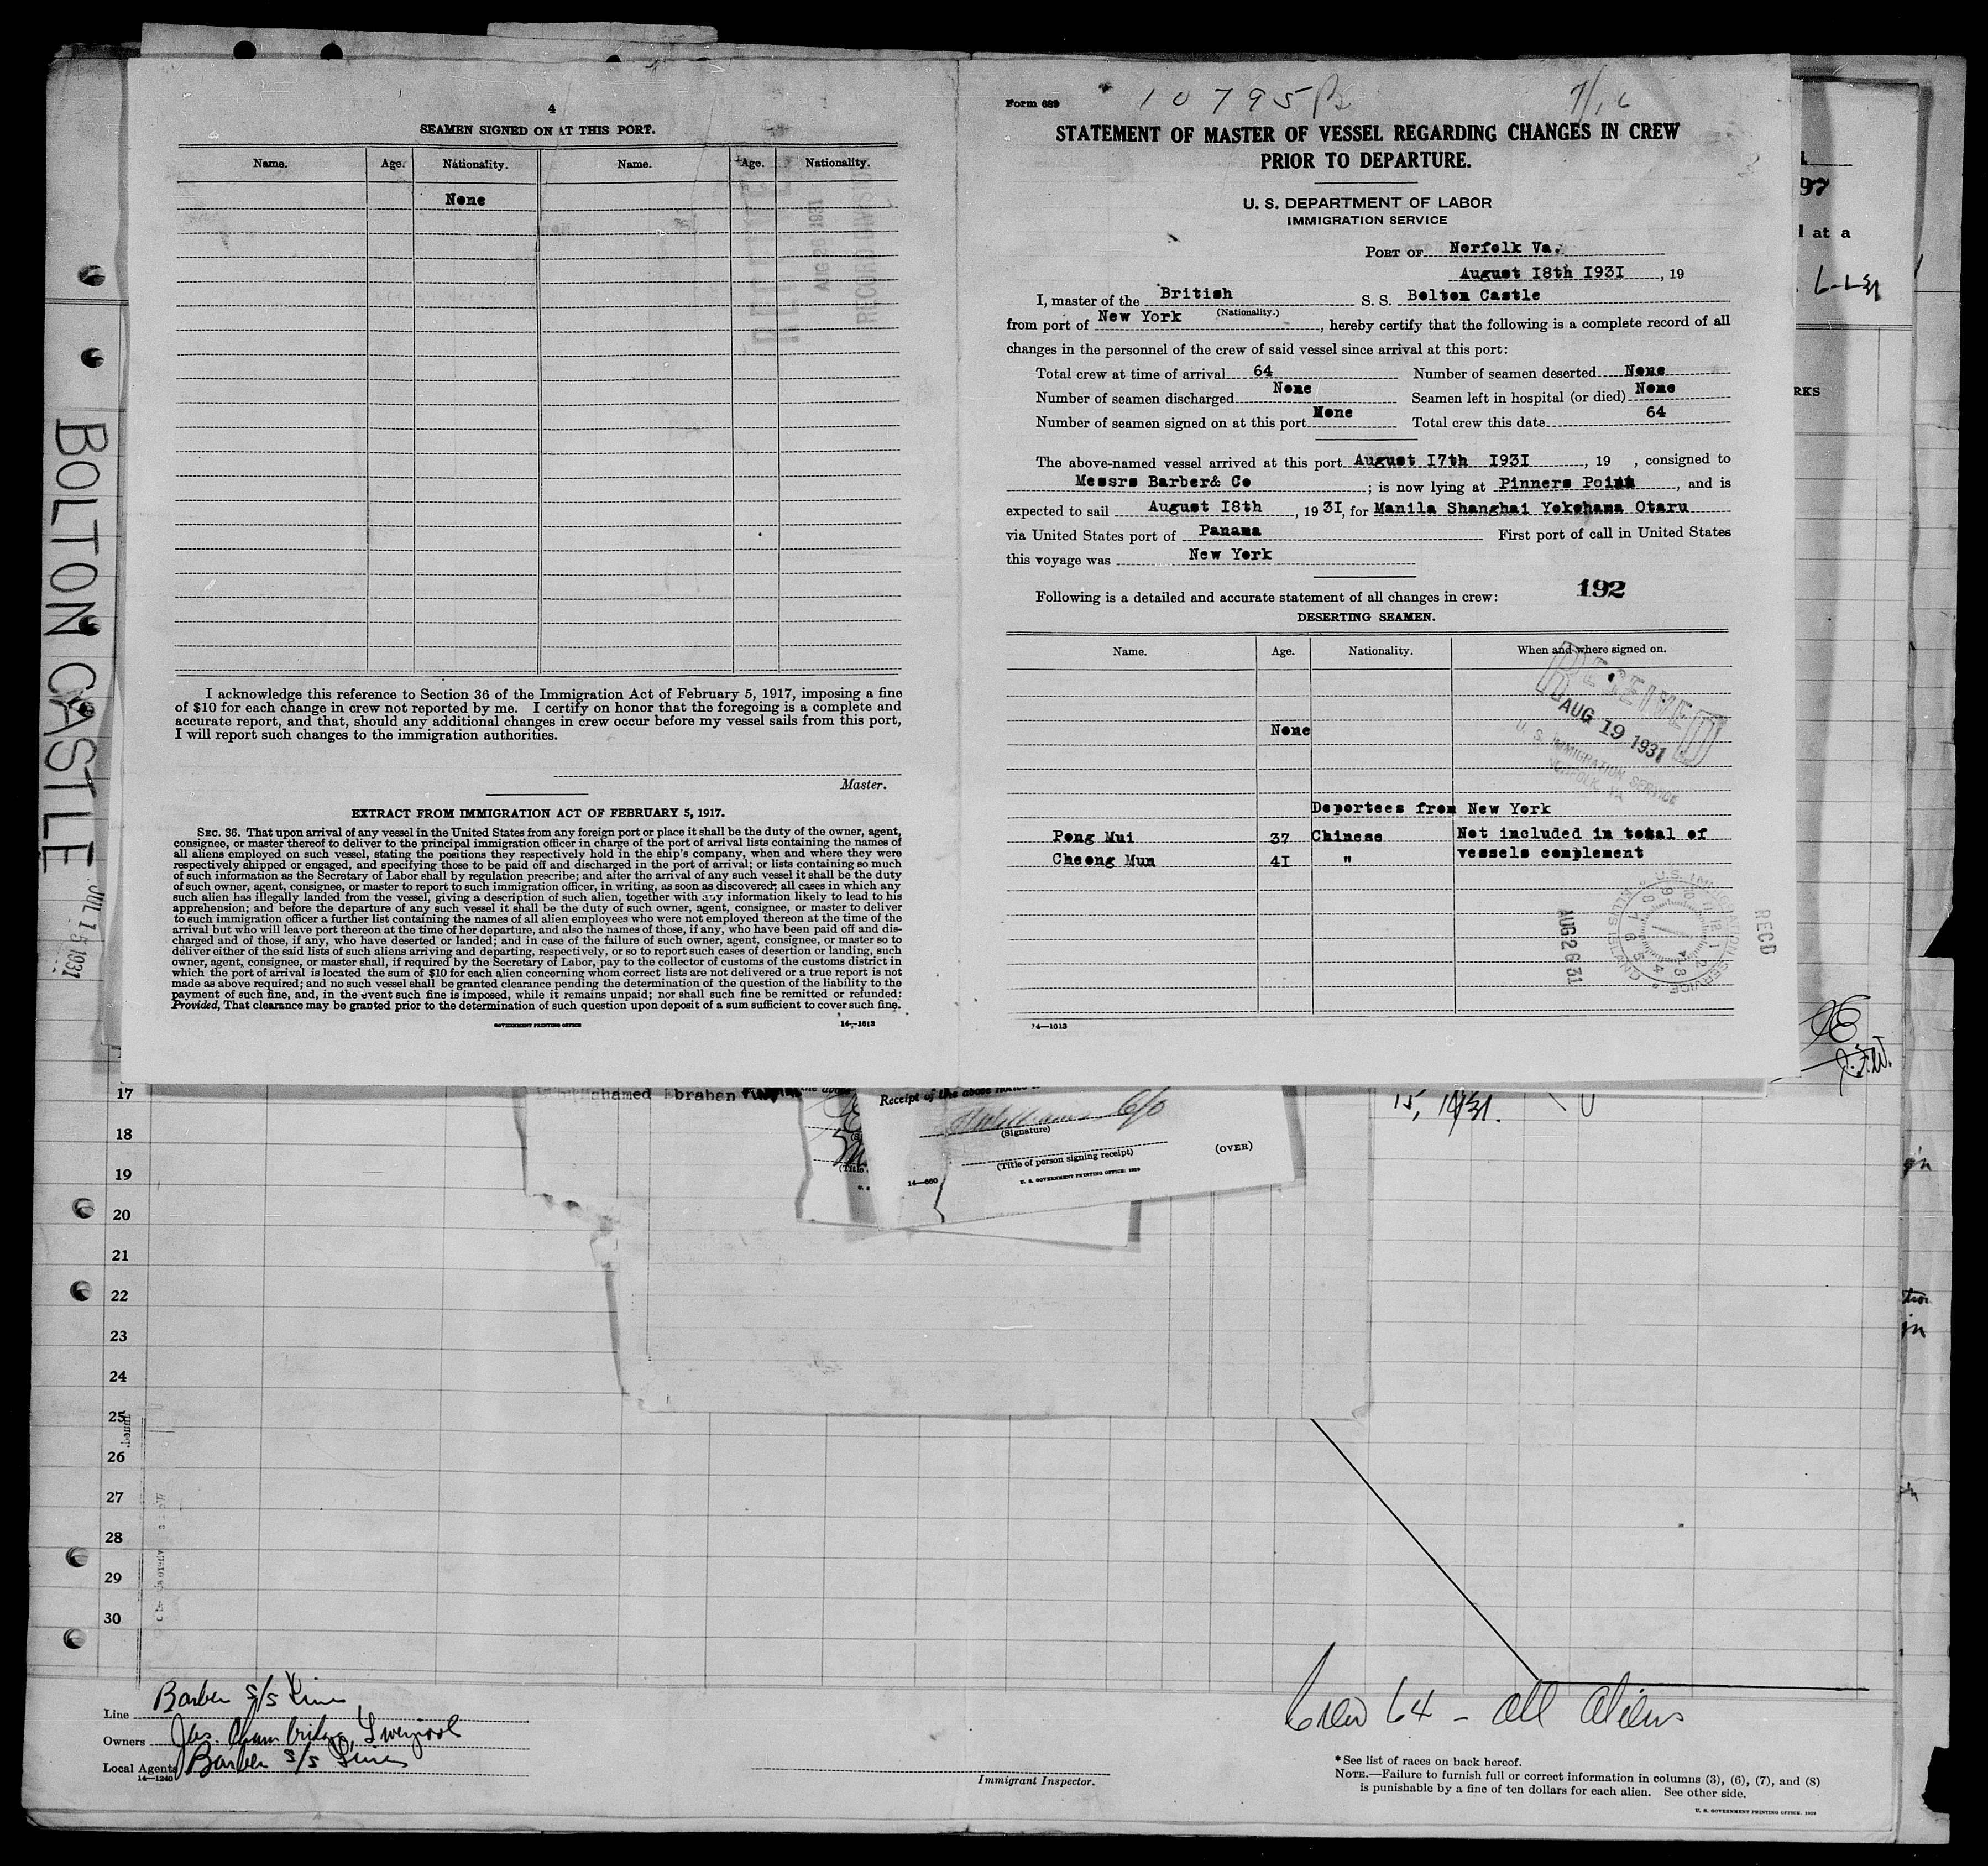 4
SEAMEN SIGNED ON AT THIS PORT.
Name. Age. Nationality. Name. Age. Nationality.
None
I acknowledge this reference to Section 36 of the Immigration Act of February 5, 1917, imposing a fine
of $10 for each change in crew not reported by me. I certify on honor that the foregoing is a complete and
accurate report, and that, should any additional changes in crew occur before my vessel sails from this port,
I will report such changes to the immigration authorities.
Master.
EXTRACT FROM IMMIGRATION ACT OF FEBRUARY 5, 1917.
SEC. 36. That upon arrival of any vessel in the United States from any foreign port or place it shall be the duty of the owner, agent,
consignee, or master thereof to deliver to the principal immigration officer in charge of the port of arrival lists containing the names of
all aliens employed on such vessel, stating the positions they respectively hold in the ship's company, when and where they were
respectively shipped or engaged, and specifying those to be paid off and discharged in the port of arrival; or lists containing so much
of such information as the Secretary of Labor shall by regulation prescribe; and after the arrival of any such vessel it shall be the duty
of such owner, agent, consignee, or master to report to such immigration officer, in writing, as soon as discovered, all cases in which any
such alien has illegally landed from the vessel, giving a description of such alien, together with any information likely to lead to his
apprehension; and before the departure of any such vessel it shall be the duty of such owner, agent, consignee, or master to deliver
to such immigration officer a further list containing the names of all alien employees who were not employed thereon at the time of the
arrival but who will leave port thereon at the time of her departure, and also the names of those, if any, who have been paid off and dis-
charged and of those, if any, who have deserted or landed; and in case of the failure of such owner, agent, consignee, or master so to
deliver either of the said lists of such aliens arriving and departing, respectively, or so to report such cases of desertion or landing, such
owner, agent, consignee, or master shall, if required by the Secretary of Labor, pay to the collector of customs of the customs district in
which the port of arrival is located the sum of $10 for each alien concerning whom correct lists are not delivered or a true report is not
made as above required; and no such vessel shall be granted clearance pending the determination of the question of the liability to the
payment of such fine, and, in the event such fine is imposed, while it remains unpaid; nor shall such fine be remitted or refunded:
Provided, That clearance may be granted prior to the determination of such question upon deposit of a sum sufficient to cover such fine.
GOVERNMENT PRINTING OFFICE 14—1613
Form 689
10795
STATEMENT OF MASTER OF VESSEL REGARDING CHANGES IN CREW
PRIOR TO DEPARTURE.
U. S. DEPARTMENT OF LABOR
IMMIGRATION SERVICE
PORT OF Norfolk Va.
August I8th I93I, 19
I, master of the British S. S. Bolton Castle
(Nationality.)
from port of New York, hereby certify that the following is a complete record of all
changes in the personnel of the crew of said vessel since arrival at this port:
Total crew at time of arrival 64 Number of seamen deserted None
Number of seamen discharged None Seamen left in hospital (or died) None
Number of seamen signed on at this port None Total crew this date 64
The above-named vessel arrived at this port August I7th I93I, 19 , consigned to
Messrs Barber& Co; is now lying at Pinners Point, and is
expected to sail August I8th, 19 3I, for Manila Shanghai Yokohama Otaru
via United States port of Panama First port of call in United States
this voyage was New York
192
Following is a detailed and accurate statement of all changes in crew:
DESERTING SEAMEN.
Name. Age. Nationality. When and where signed on.
RECEIVED
AUG 19 1931
U. S. IMMIGRATION SERVICE
NORFOLK, VA
None
Deportees from New York
Pong Mui 37 Chinese Not included in total of
Cheong Mun 4I " vessels complement
AUG 26 31
RECD
14—1613
BOLTON CASTLE
JUL 15 1931
97
l at a
6-1-31
RKS
Mahamed Ebrahan
Receipt of the above
(Signature)
(Title of person signing receipt)
(OVER)
14—660
U. S. GOVERNMENT PRINTING OFFICE: 1929
15, 1931.
17
18
19
20
21
22
23
24
25
26
27
28
29
30
Line Barber s/s Line
Owners Jas. Chambridge Liverpool
Local Agents Barber s/s Line
14—1240
Immigrant Inspector.
Crew 64 - all aliens
*See list of races on back hereof.
NOTE.—Failure to furnish full or correct information in columns (3), (6), (7), and (8)
is punishable by a fine of ten dollars for each alien. See other side.
U. S. GOVERNMENT PRINTING OFFICE: 1929